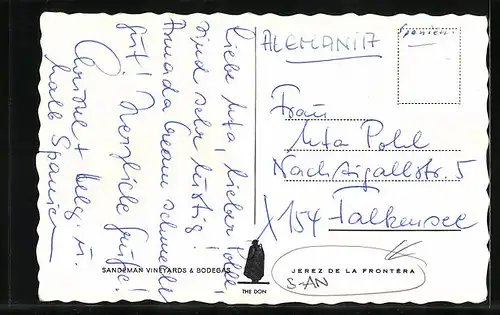 Liebe Uta, lieber Pohle,
sind sehr lustig!
Armada Cream schmeckt
gut! Herzliche Grüße!
Christel + Helg. u.
halb Spanien
ALEMANIA
Spanien
Frau
Uta Pohl
Nachtigallstr. 5
X 154 Falkensee
SANDEMAN VINEYARDS & BODEGAS
THE DON
JEREZ DE LA FRONTERA
S-AN